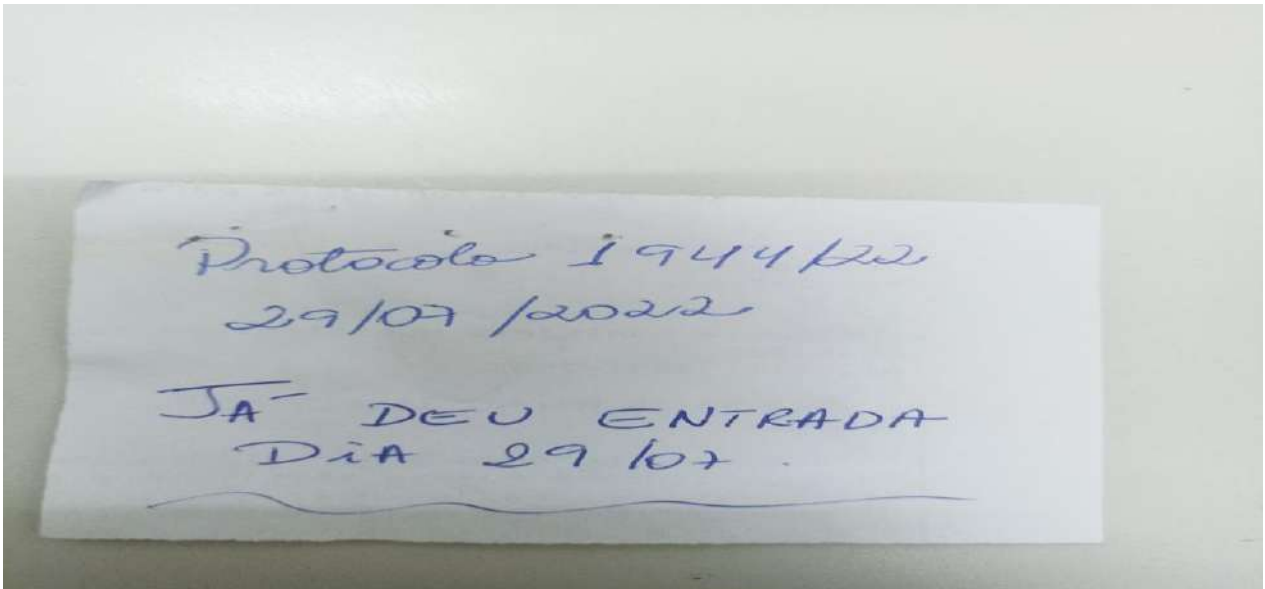 Protocolo 1944/22
29/07/2022
JÁ DEU ENTRADA
DiA 29/07.